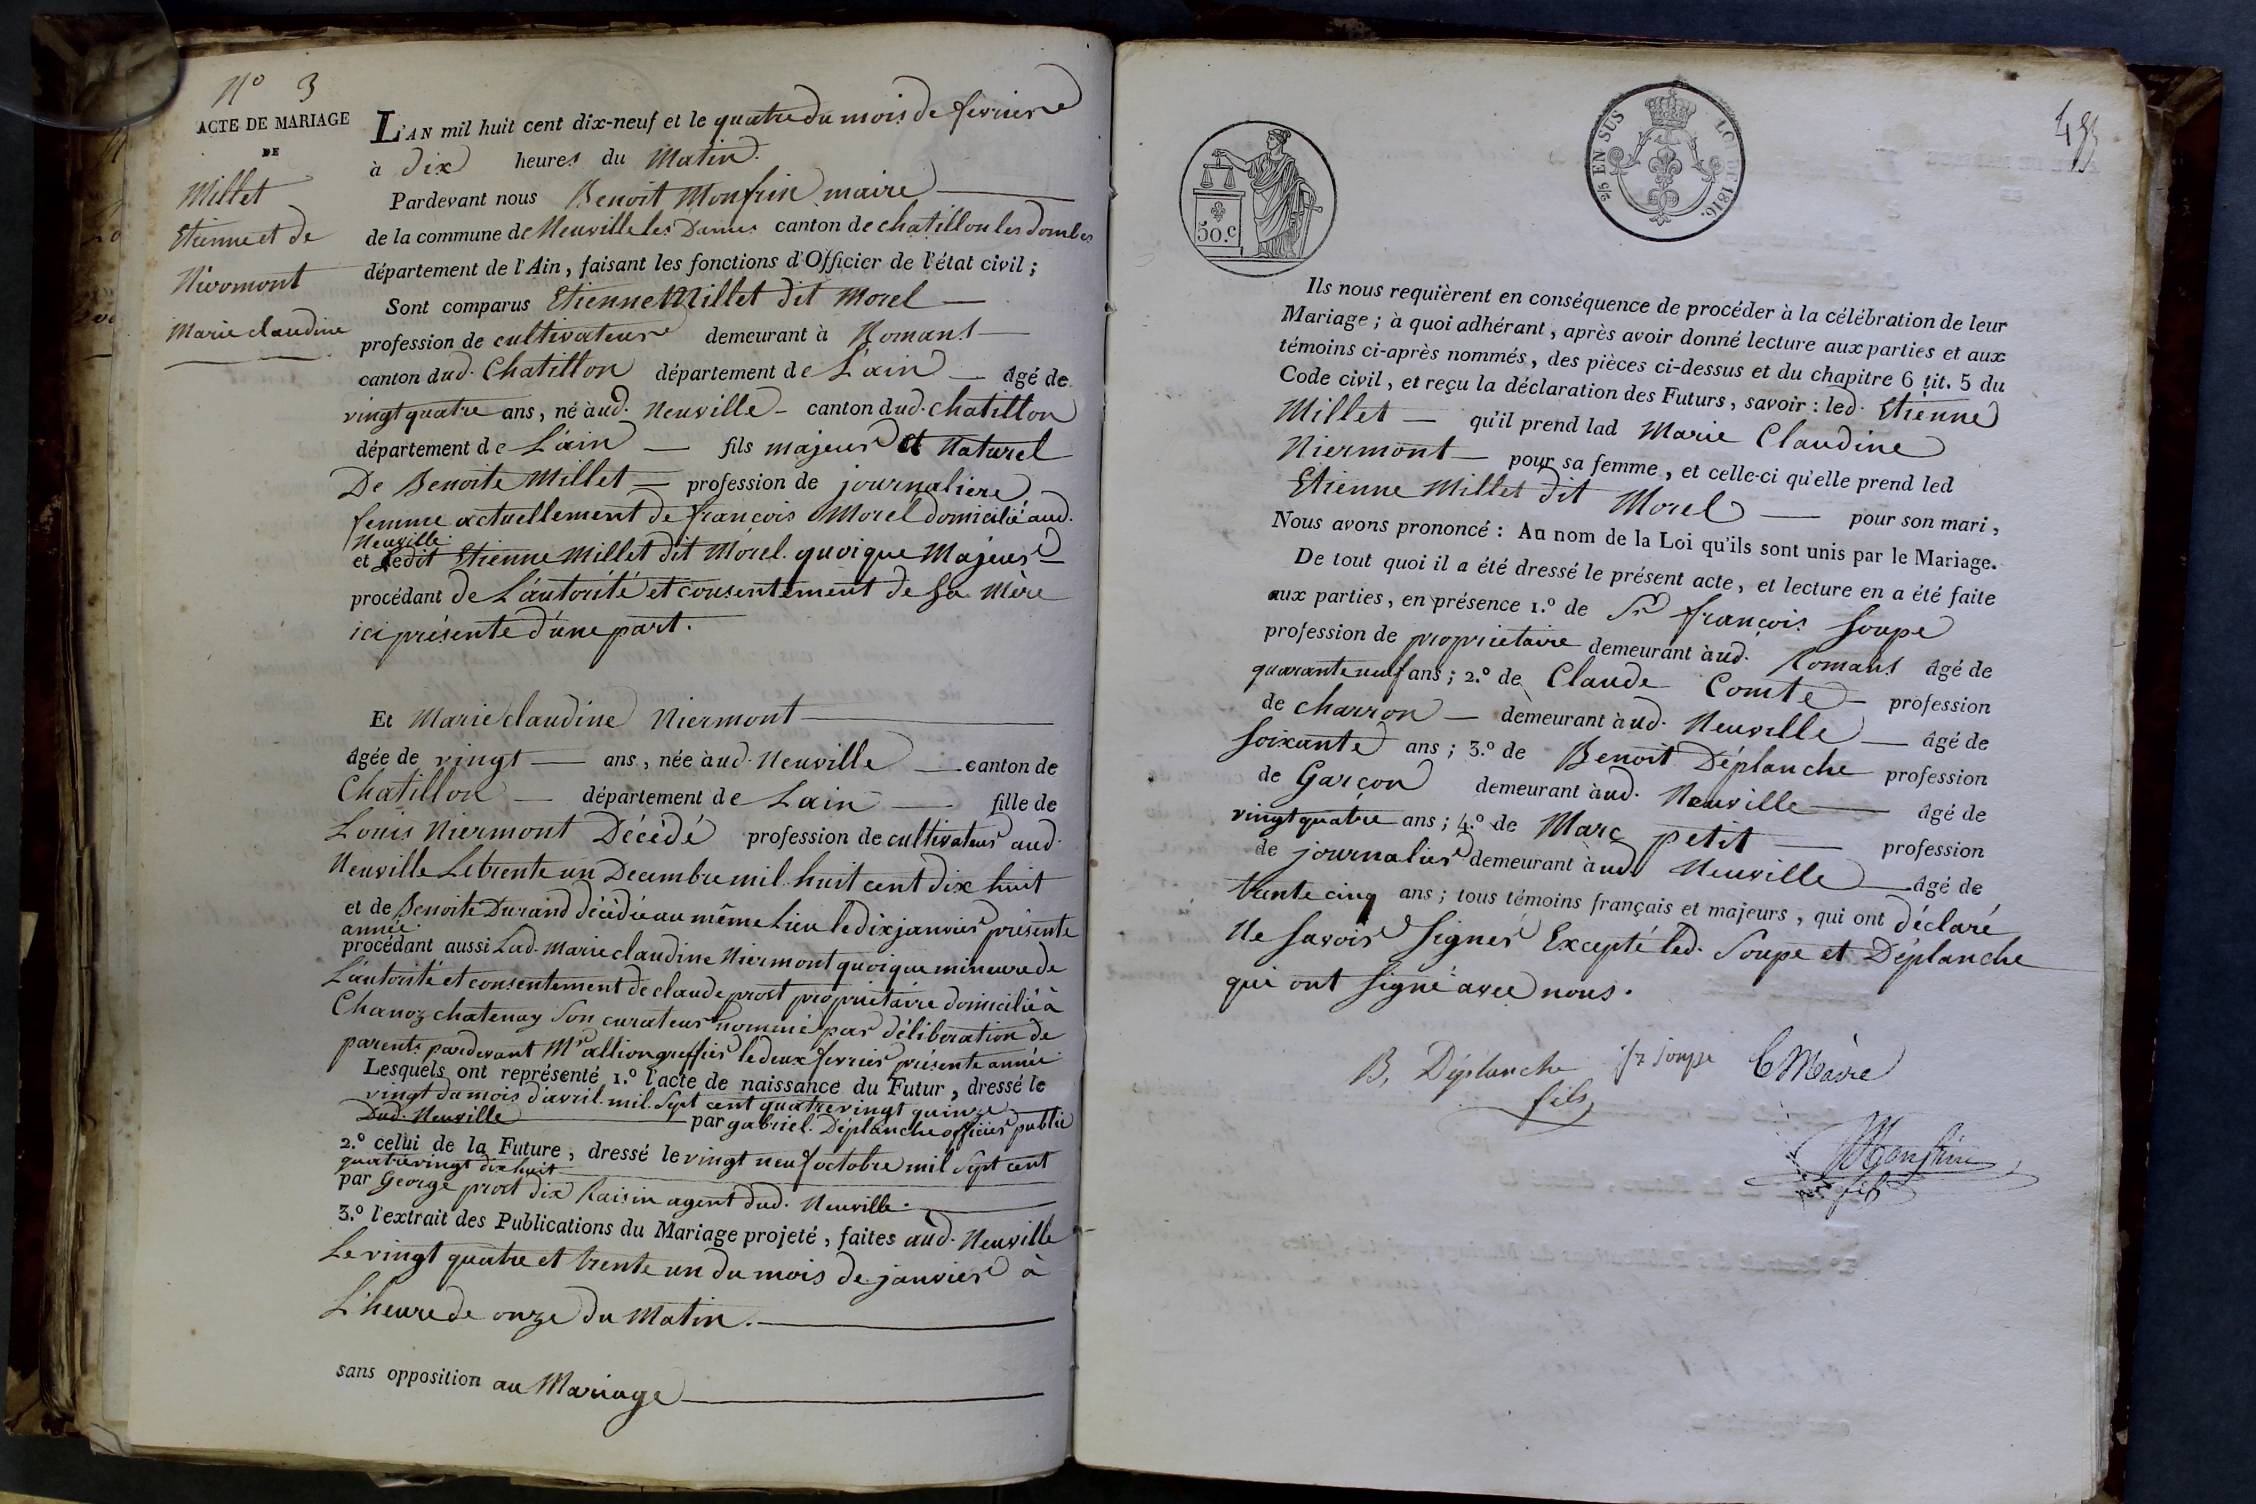 N.º 3
ACTE DE MARIAGE
DE
Millet
Etienne et de
Niermont
Marie claudine
L'AN mil huit cent dix-neuf et le quatre du mois de fevrier
à dix heures du Matin.
Pardevant nous Benoit Monfrin maire
de la commune de Neuville les Dames canton de chatillon les dombes
département de l'Ain, faisant les fonctions d'Officier de l'état civil;
Sont comparus Etienne Millet dit Morel
profession de cultivateur demeurant à Romans
canton dud. Chatillon département de L'ain âgé de
vingt quatre ans, né àud. Neuville canton dud. chatillon
département de L'ain fils majeur et Naturel
De Benoite Millet profession de journaliere
femme actuellement de francois Morel domicilié aud.
Neuville.
et Ledit Etienne Millet dit Morel. quoique Majeur
procédant de L'autorité et consentement de sa Mère
ici présente d'une part.
Et Marie claudine Niermont
âgée de vingt ans, née àud. Neuville canton de
Chatillon département de Lain fille de
Louis Niermont Décédé profession de cultivateur aud.
Neuville Le trente un Decembre mil huit cent dix huit
et de Benoite Durand décédée au même Lieu le dix janvier présente
année.
procédant aussi Lad. Marie claudine Niermont quoique mineure de
L'autorité et consentement de claude prost propriétaire domicilié à
Chanoz chatenay Son curateur nommé par déliberation de
parents pardevant Mr allion greffier le deux fevrier présente année.
Lesquels ont représenté 1.º l'acte de naissance du Futur, dressé le
vingt du mois d'avril mil Sept cent quatrevingt quinze
Dud. Neuville par gabriel Déplanche officier public
2.º celui de la Future, dressé le vingt neuf octobre mil Sept cent
quatrevingt dix huit
par George prost dix Raisin agent dud. Neuville.
3.º l'extrait des Publications du Mariage projeté, faites aud. Neuville
Le vingt quatre et trente un du mois de janvier à
L'heure de onze du Matin.
sans opposition au Mariage
50.c
2/5 EN SUS
LOI DE 1816.
Ils nous requièrent en conséquence de procéder à la célébration de leur
Mariage; à quoi adhérant, après avoir donné lecture aux parties et aux
témoins ci-après nommés, des pièces ci-dessus et du chapitre 6 tit. 5 du
Code civil, et reçu la déclaration des Futurs, savoir: led. Etienne
Millet qu'il prend lad Marie Claudine
Niermont pour sa femme, et celle-ci qu'elle prend led
Etienne Millet dit Morel pour son mari,
Nous avons prononcé: Au nom de la Loi qu'ils sont unis par le Mariage.
De tout quoi il a été dressé le présent acte, et lecture en a été faite
aux parties, en présence 1.º de Sr françois Soupe
profession de proprietaire demeurant àud. Romans âgé de
quarante neuf ans; 2.º de Claude Comte profession
de charron demeurant àud. Neuville âgé de
soixante ans; 3.º de Benoit Déplanche profession
de Garçon demeurant àud. Neuville âgé de
vingt quatre ans; 4.º de Marc petit profession
de journalier demeurant àud. Neuville âgé de
trente cinq ans; tous témoins français et majeurs, qui ont déclaré
Ne savoir Signer Excepté led. Soupe et Déplanche
qui ont Signé avec nous.
B. Déplanche fr Soupe Le Maire
fils
Monfrin